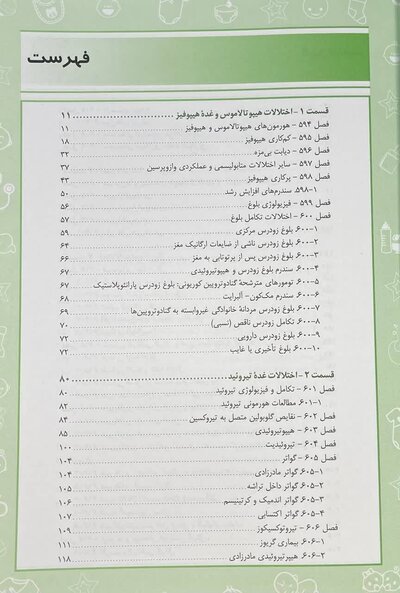 فهرست
قسمت ۱- اختلالات هیپوتالاموس و غدهٔ هیپوفیز ۱۱
فصل ۵۹۴ - هورمون‌های هیپوتالاموس و هیپوفیز ۱۱
فصل ۵۹۵ - کم‌کاری هیپوفیز ۱۸
فصل ۵۹۶ - دیابت بی‌مزه ۳۲
فصل ۵۹۷ - سایر اختلالات متابولیسمی و عملکردی وازوپرسین ۳۷
فصل ۵۹۸ - پرکاری هیپوفیز ۴۳
۵۹۸-۱ سندرم‌های افزایش رشد ۵۰
فصل ۵۹۹ - فیزیولوژی بلوغ ۵۶
فصل ۶۰۰ - اختلالات تکامل بلوغ ۵۷
۶۰۰-۱ بلوغ زودرس مرکزی ۵۹
۶۰۰-۲ بلوغ زودرس ناشی از ضایعات ارگانیک مغز ۶۴
۶۰۰-۳ بلوغ زودرس پس از پرتوتابی به مغز ۶۶
۶۰۰-۴ سندرم بلوغ زودرس و هیپوتیروئیدی ۶۷
۶۰۰-۵ تومورهای مترشحهٔ گنادوتروپین کوریونی: بلوغ زودرس پارانئوپلاستیک ۶۷
۶۰۰-۶ سندرم مک‌کون- آلبرایت ۶۸
۶۰۰-۷ بلوغ زودرس مردانهٔ خانوادگی غیروابسته به گنادوتروپین‌ها ۶۹
۶۰۰-۸ تکامل زودرس ناقص (نسبی) ۷۰
۶۰۰-۹ بلوغ زودرس دارویی ۷۲
۶۰۰-۱۰ بلوغ تأخیری یا غایب ۷۲
قسمت ۲- اختلالات غدهٔ تیروئید ۸۰
فصل ۶۰۱ - تکامل و فیزیولوژی تیروئید ۸۰
۶۰۱-۱ مطالعات هورمونی تیروئید ۸۲
فصل ۶۰۲ - نقایص گلوبولین متصل به تیروکسین ۸۴
فصل ۶۰۳ - هیپوتیروئیدی ۸۵
فصل ۶۰۴ - تیروئیدیت ۱۰۰
فصل ۶۰۵ - گواتر ۱۰۴
۶۰۵-۱ گواتر مادرزادی ۱۰۴
۶۰۵-۲ گواتر داخل تراشه ۱۰۵
۶۰۵-۳ گواتر اندمیک و کرتینیسم ۱۰۶
۶۰۵-۴ گواتر اکتسابی ۱۰۷
فصل ۶۰۶ - تیروتوکسیکوز ۱۰۹
۶۰۶-۱ بیماری گریوز ۱۱۱
۶۰۶-۲ هیپرتیروئیدی مادرزادی ۱۱۸